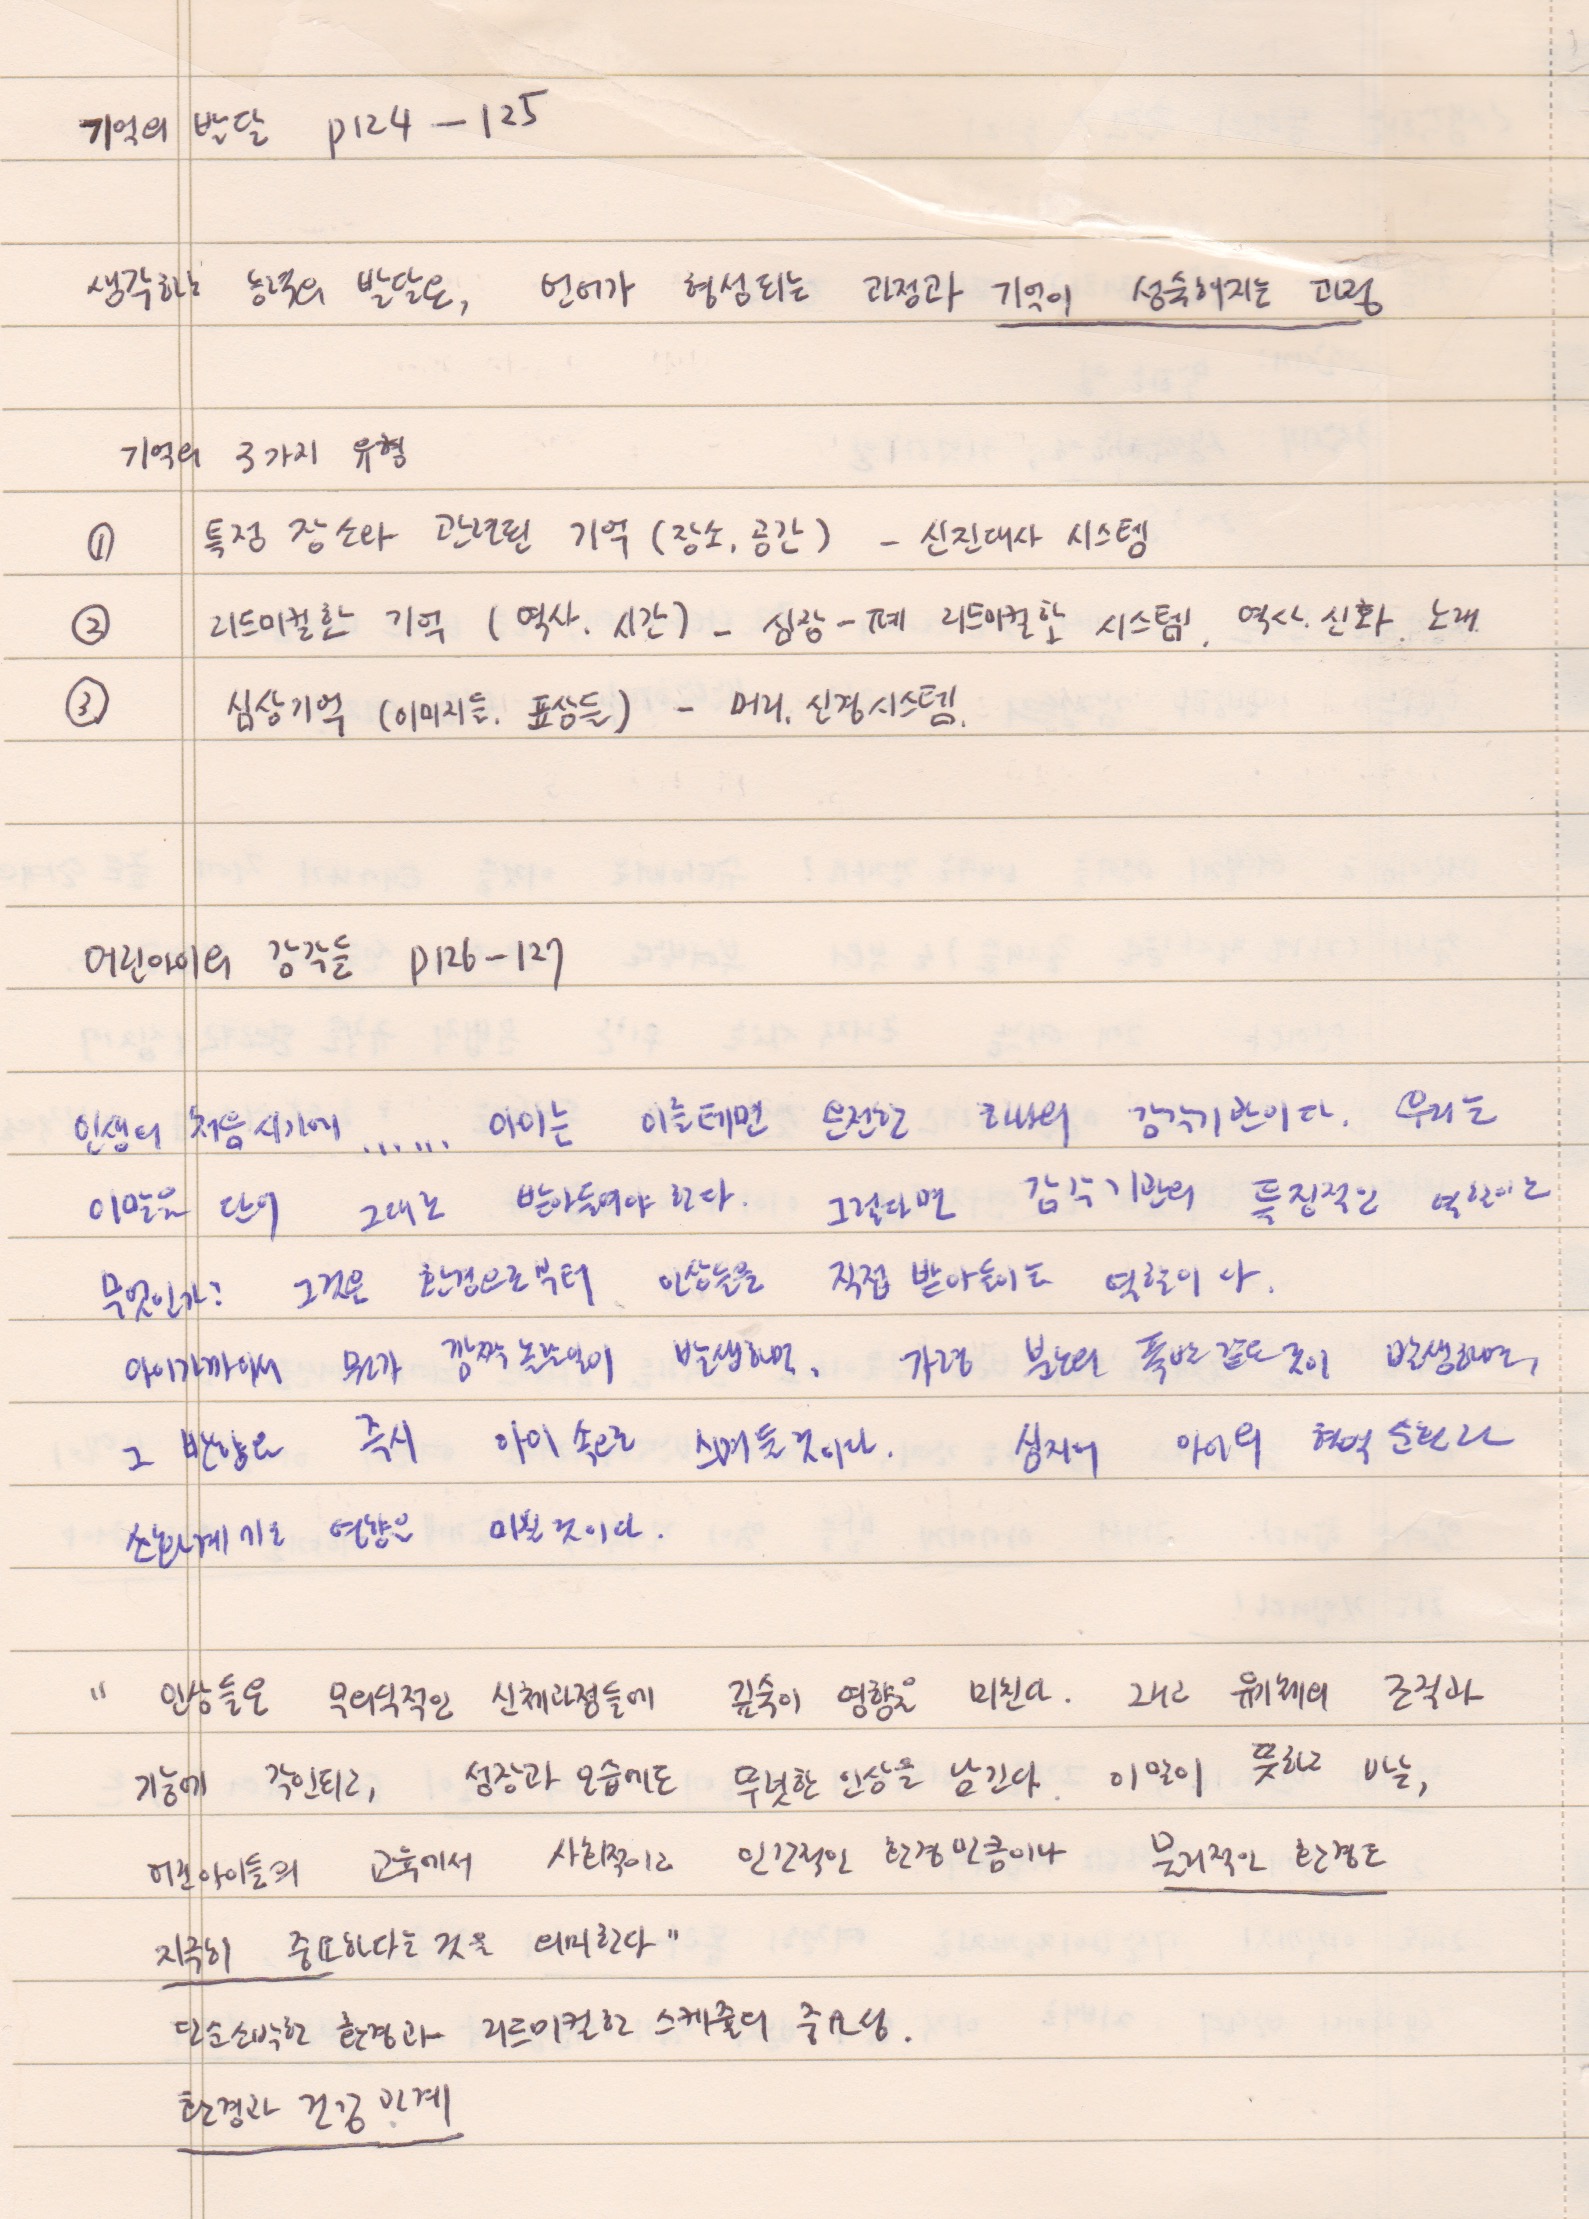 기억의 발달 p124 - 125
생각하는 능력의 발달은, 언어가 형성되는 과정과 기억이 성숙해지는 과정
기억의 3가지 유형
① 특정 장소와 관련된 기억 (장소, 공간) - 신진대사 시스템
② 리드미컬한 기억 (역사. 시간) - 심장-폐 리드미컬한 시스템. 역사. 신화. 노래
③ 심상기억 (이미지들. 표상들) - 머리. 신경시스템.
어린아이의 감각들 p126-127
인생의 처음시기에 ...... 아이는 이를테면 온전한 하나의 감각기관이다. 우리는
이말을 단어 그대로 받아들여야 한다. 그렇다면 감각기관의 특징적인 역할은
무엇인가? 그것은 환경으로부터 인상들을 직접 받아들이는 역할이다.
아이가까이서 뭔가 깜짝놀랄일이 발생하면, 가령 분노의 폭발같은 것이 발생하면,
그 반향은 즉시 아이 속으로 스며들 것이다. 심지어 아이의 혈액순환과
소화계까지 영향을 미칠 것이다.
" 인상들은 무의식적인 신체과정들에 깊숙이 영향을 미친다. 그리고 유기체의 조직과
기능에 각인되고, 성장과 모습에도 뚜렷한 인상을 남긴다. 이 말이 뜻하고 바는,
어린아이들의 교육에서 사회적이고 인간적인 환경만큼이나 물리적인 환경도
지극히 중요하다는 것을 의미한다"
단순소박한 환경과 리드미컬한 스케줄의 중요성.
환경과 건강 관계